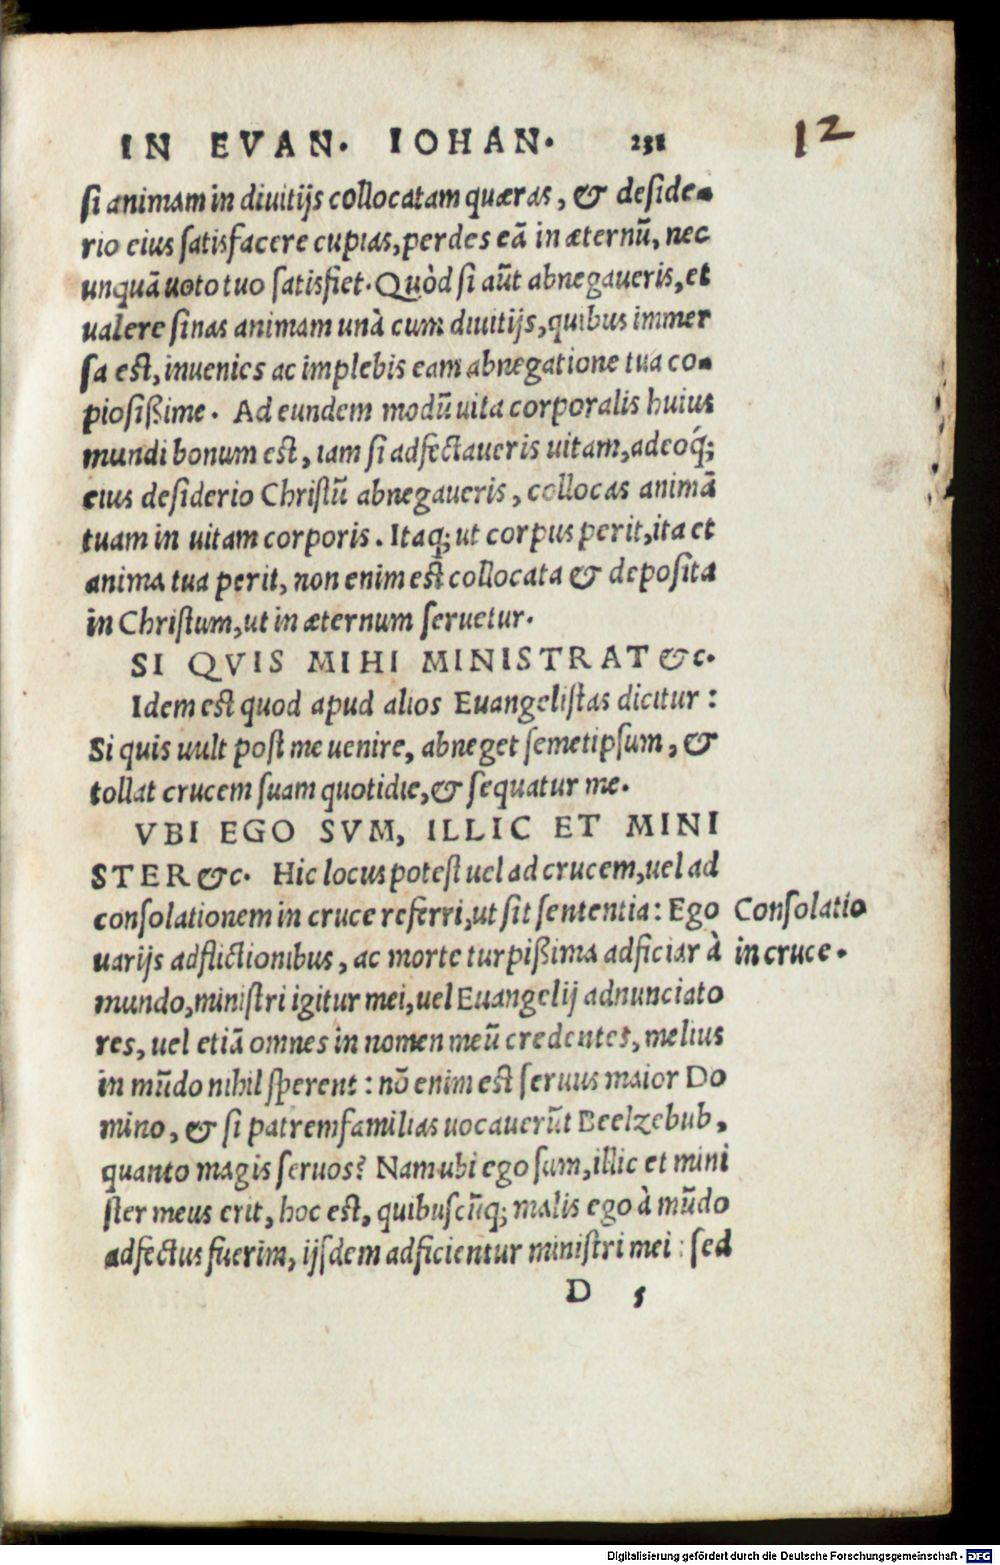 IN EVAN. IOHAN. 231
12
si animam in diuitijs collocatam quæras, & deside-
rio eius satisfacere cupias, perdes eā in æternū, nec
unquā uoto tuo satisfiet. Quòd si aūt abnegaueris, et
ualere sinas animam unà cum diuitijs, quibus immer
sa est, inuenies ac implebis eam abnegatione tua co-
piosißime. Ad eundem modū uita corporalis huius
mundi bonum est, iam si adfectaueris uitam, adeoq́;
eius desiderio Christū abnegaueris, collocas animā
tuam in uitam corporis. Itaq; ut corpus perit, ita et
anima tua perit, non enim est collocata & deposita
in Christum, ut in æternum seruetur.
SI QVIS MIHI MINISTRAT &c.
Idem est quod apud alios Euangelistas dicitur:
Si quis uult post me uenire, abneget semetipsum, &
tollat crucem suam quotidie, & sequatur me.
VBI EGO SVM, ILLIC ET MINI
STER &c. Hic locus potest uel ad crucem, uel ad
consolationem in cruce referri, ut sit sententia: Ego
uarijs adflictionibus, ac morte turpißima adficiar à
mundo, ministri igitur mei, uel Euangelij adnunciato
res, uel etiā omnes in nomen meū credentes, melius
in mūdo nihil sperent: nō enim est seruus maior Do
mino, & si patremfamilias uocauerūt Beelzebub,
quanto magis seruos? Nam ubi ego sum, illic et mini
ster meus erit, hoc est, quibuscūq; malis ego à mūdo
adfectus fuerim, ijsdem adficientur ministri mei: sed
Consolatio
in cruce.
D 5
Digitalisierung gefördert durch die Deutsche Forschungsgemeinschaft - DFG